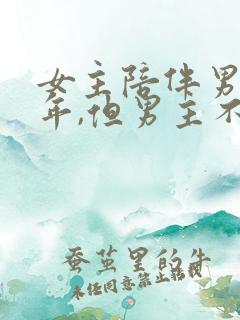 女主陪伴男
年,但男主不
蚕茧里的牛
未经同意禁止转载